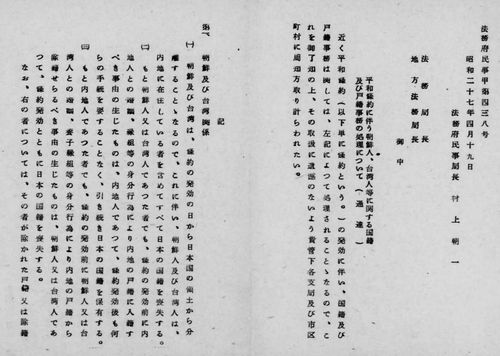 法務府民事甲第四三八号
昭和二十七年四月十九日
法務府民事局長 村上朝一
法務局長
地方法務局長 御中
平和条約に伴う朝鮮人、台湾人等に関する国籍
及び戸籍事務の処理について（通達）
近く平和条約（以下単に条約という。）の発効に伴い、国籍及び
戸籍事務に関しては、左記によつて処理されることとなるので、こ
れを御了知の上、その取扱に遺憾のないよう貴管下各支局及び市区
町村に周知方取り計らわれたい。
記
第一、朝鮮及び台湾関係
(一) 朝鮮及び台湾は、条約の発効の日から日本国の領土から分
離することとなるので、これに伴い、朝鮮人及び台湾人は、
内地に在住している者を含めてすべて日本の国籍を喪失する。
(二) もと朝鮮人又は台湾人であつた者でも、条約の発効前に内
地人との婚姻、縁組等の身分行為により内地の戸籍に入籍す
べき事由の生じたものは、内地人であつて、条約発効後も何
らの手続を要することなく、引き続き日本の国籍を保有する。
(三) もと内地人であつた者でも、条約の発効前に朝鮮人又は台
湾人との婚姻、養子縁組等の身分行為により内地の戸籍から
除籍せらるべき事由の生じたものは、朝鮮人又は台湾人であ
つて、条約発効とともに日本の国籍を喪失する。
なお、右の者については、その者が除かれた戸籍又は除籍